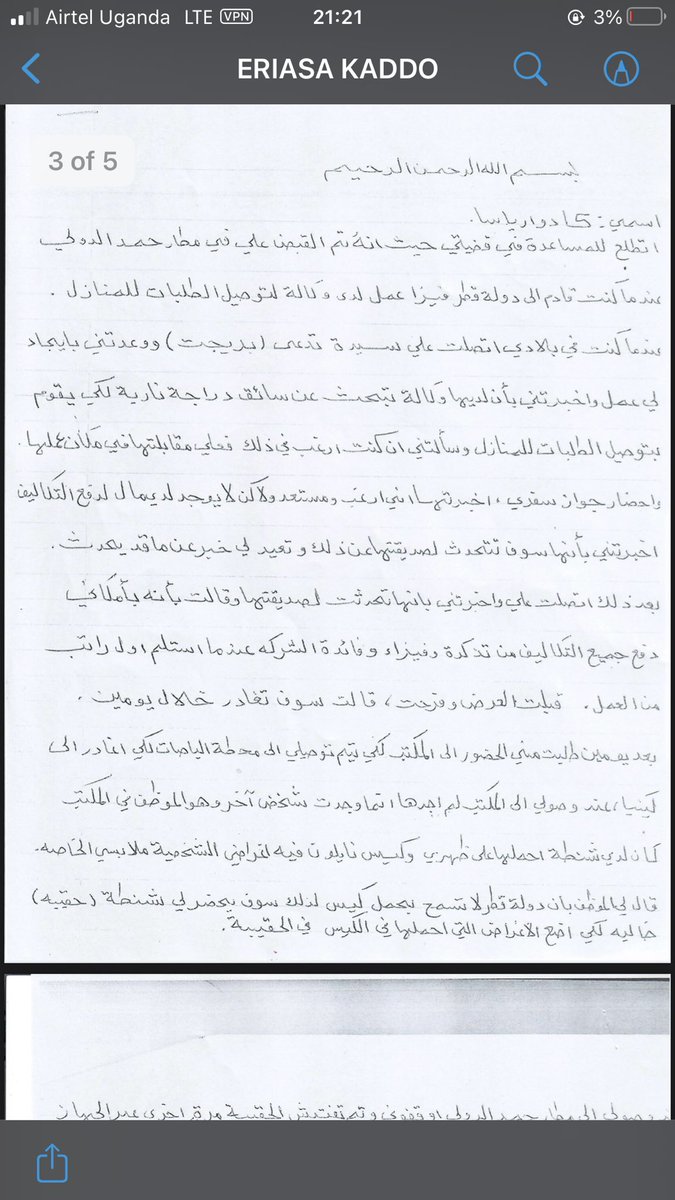 Airtel Uganda LTE VPN 21:21 3%
ERIASA KADDO
3 of 5
بسم الله الرحمن الرحيم
اسمي: كادوارياسا.
اتطلع للمساعدة في قضيتي حيث انة تم القبض علي في مطار حمد الدولي
عندما كنت قادم الى دولة قطر فيزا عمل لدى وكالة لتوصيل الطلبات للمنازل .
عندما كنت في بلادي اتصلت علي سيدة تدعى (بديجت) ووعدتني بايجاد
لي عمل واخبرتني بأن لديها وكالة تبحث عن سائق دراجة نارية لكي يقوم
بتوصيل الطلبات للمنازل وسألتني ان كنت ارغب في ذلك فعلي مقابلتها في مكان عملها .
واحضار جواز سفري ، اخبرتها انني ارغب ومستعد ولاكن لا يوجد لدي مال لدفع التكاليف
اخبرتني بأنها سوف تتحدث لصديقتها عن ذلك وتعيد لي خبر عن ما قد يحدث .
بعد ذلك اتصلت علي واخبرتني بانها تحدثت لصديقتها وقالت بأنه بأمكاني
دفع جميع التكاليف من تذكرة وفيزاء وفائدة الشركه عندما استلم اول راتب
من العمل . قبلت العرض وفرحت ، قالت سوف تغادر خلال يومين .
بعد يومين طلبت مني الحضور الى المكتب لكي يتم توصيلي الى محطة الباصات لكي اغادر الى
كينيا ، عند وصولي الى المكتب لم اجدها انما وجدت شخص آخر وهو الموظف في المكتب
كان لدي شنطة احملها على ظهري وكيس نايلون فيه اغراضي الشخصية ملابسي الخاصه .
قال لي الموظف بان دولة قطر لا تسمح بحمل كيس لذلك سوف يحضر لي شنطة (حقيبه)
خاليه لكي اضع الاغراض التي احملها في الكيس في الحقيبة .
وصولي الى مطار حمد الدولي اوقفوني وتم تفتيش الحقيبة مرة اخرى عبر الجهاز